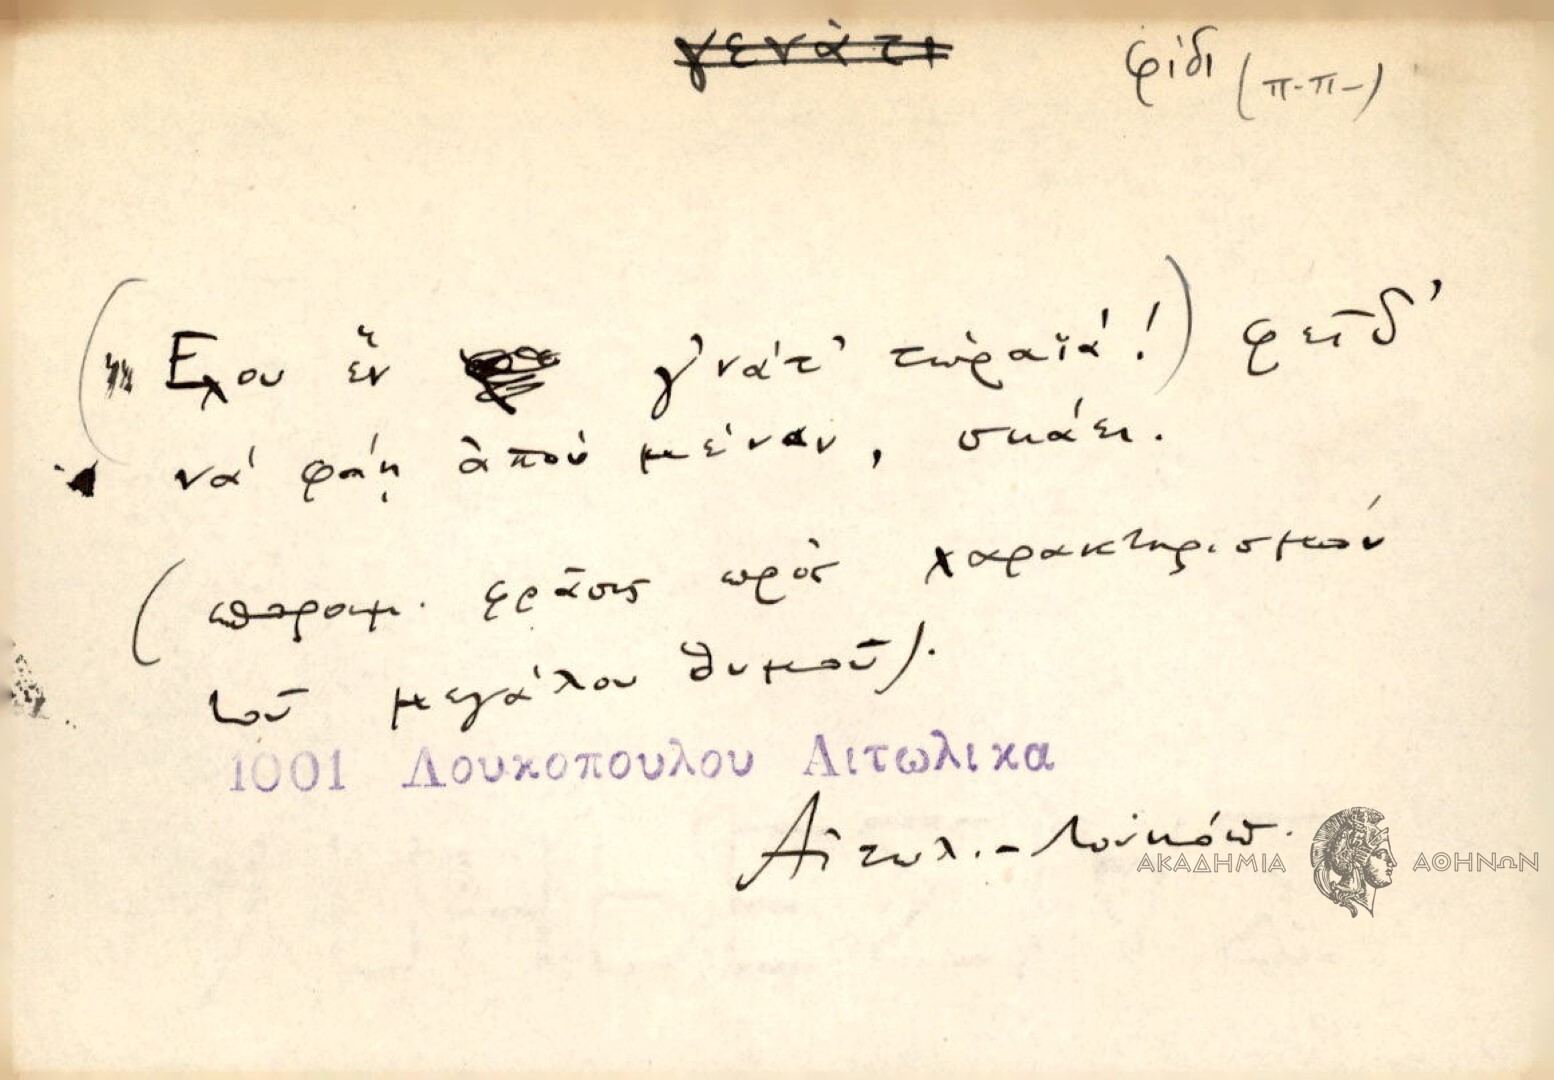 γενάτι
φίδι (π-π-)
(Ἔχου ἕν γ'νάτ' τώραϊά!) φεῖδ'
νά φάῃ ἀπού μέναν, σκάει.
(παροιμ. φράσις πρὸς χαρακτηρισμὸν
τοῦ μεγάλου θυμοῦ).
1001 Λουκοπουλου Αιτωλικα
Αἰτωλ. - Λουκόπ.
ΑΚΑΔΗΜΙΑ ΑΘΗΝΩΝ